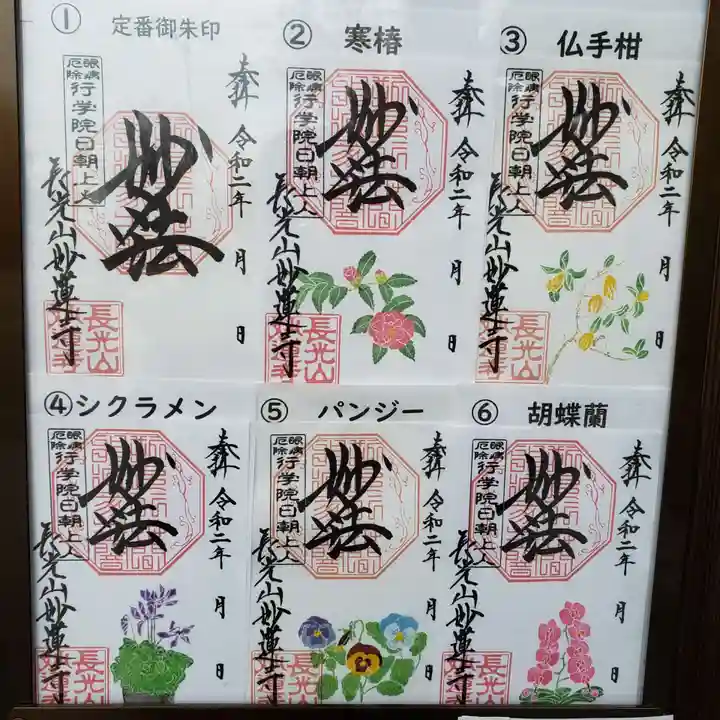 ① 定番御朱印
奉拝 令和二年 月 日
妙法
眼病厄除 行学院日朝上人
長光山妙蓮寺
長光山妙蓮寺
② 寒椿
奉拝 令和二年 月 日
妙法
眼病厄除 行学院日朝上人
長光山妙蓮寺
長光山妙蓮寺
③ 仏手柑
奉拝 令和二年 月 日
妙法
眼病厄除 行学院日朝上人
長光山妙蓮寺
長光山妙蓮寺
④シクラメン
奉拝 令和二年 月 日
妙法
眼病厄除 行学院日朝上人
長光山妙蓮寺
長光山妙蓮寺
⑤ パンジー
奉拝 令和二年 月 日
妙法
眼病厄除 行学院日朝上人
長光山妙蓮寺
長光山妙蓮寺
⑥ 胡蝶蘭
奉拝 令和二年 月 日
妙法
眼病厄除 行学院日朝上人
長光山妙蓮寺
長光山妙蓮寺